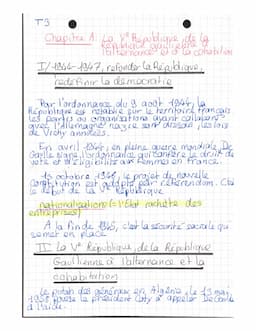 T3
Chapitre 1: La Vᵉ République, de la
République gaullienne à
l'alternance et à la cohabitation
I/ 1944-1947, refonder la République,
redéfinir la démocratie
Par l'ordonnance du 9 août 1944, la
République est rétablie sur le territoire français
les partis ou organisations ayant collaboré
avec l'Allemagne nazie sont dissous, les lois
de Vichy annulées.
En avril 1944, en pleine guerre mondiale, De
Gaulle signe l'ordonnance qui confère le droit de
vote et d'éligibilité aux femmes en France.
octobre 1946, le projet de nouvelle
Constitution est adopté par référendum. C'est
le début de la Vᵉ République
nationalisations (= l'État rachète des
entreprises)
À la fin de 1945, c'est la sécurité sociale qui
se met en place
II La Vᵉ République, de la République
Gaullienne à l'alternance et la
cohabitation
Le putsch des généraux en Algérie, le 13 mai
1958 pousse le président Coty à appeler De Gaulle
à l'aide.